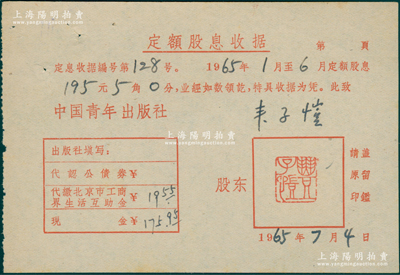 上海阳明拍卖
定額股息收据
第 頁
定息收据編号第128号。1965年1月至6月定額股息
195元5角0分，並經如数領訖，特具收据为凭。此致
中国青年出版社
丰子愷
出版社填写：
代認公債券¥
代繳北京市工商界生活互助金¥1955
現 金¥175.95
股东
豐子愷
請蓋原留印鑑
1965年7月4日
上海阳明拍卖